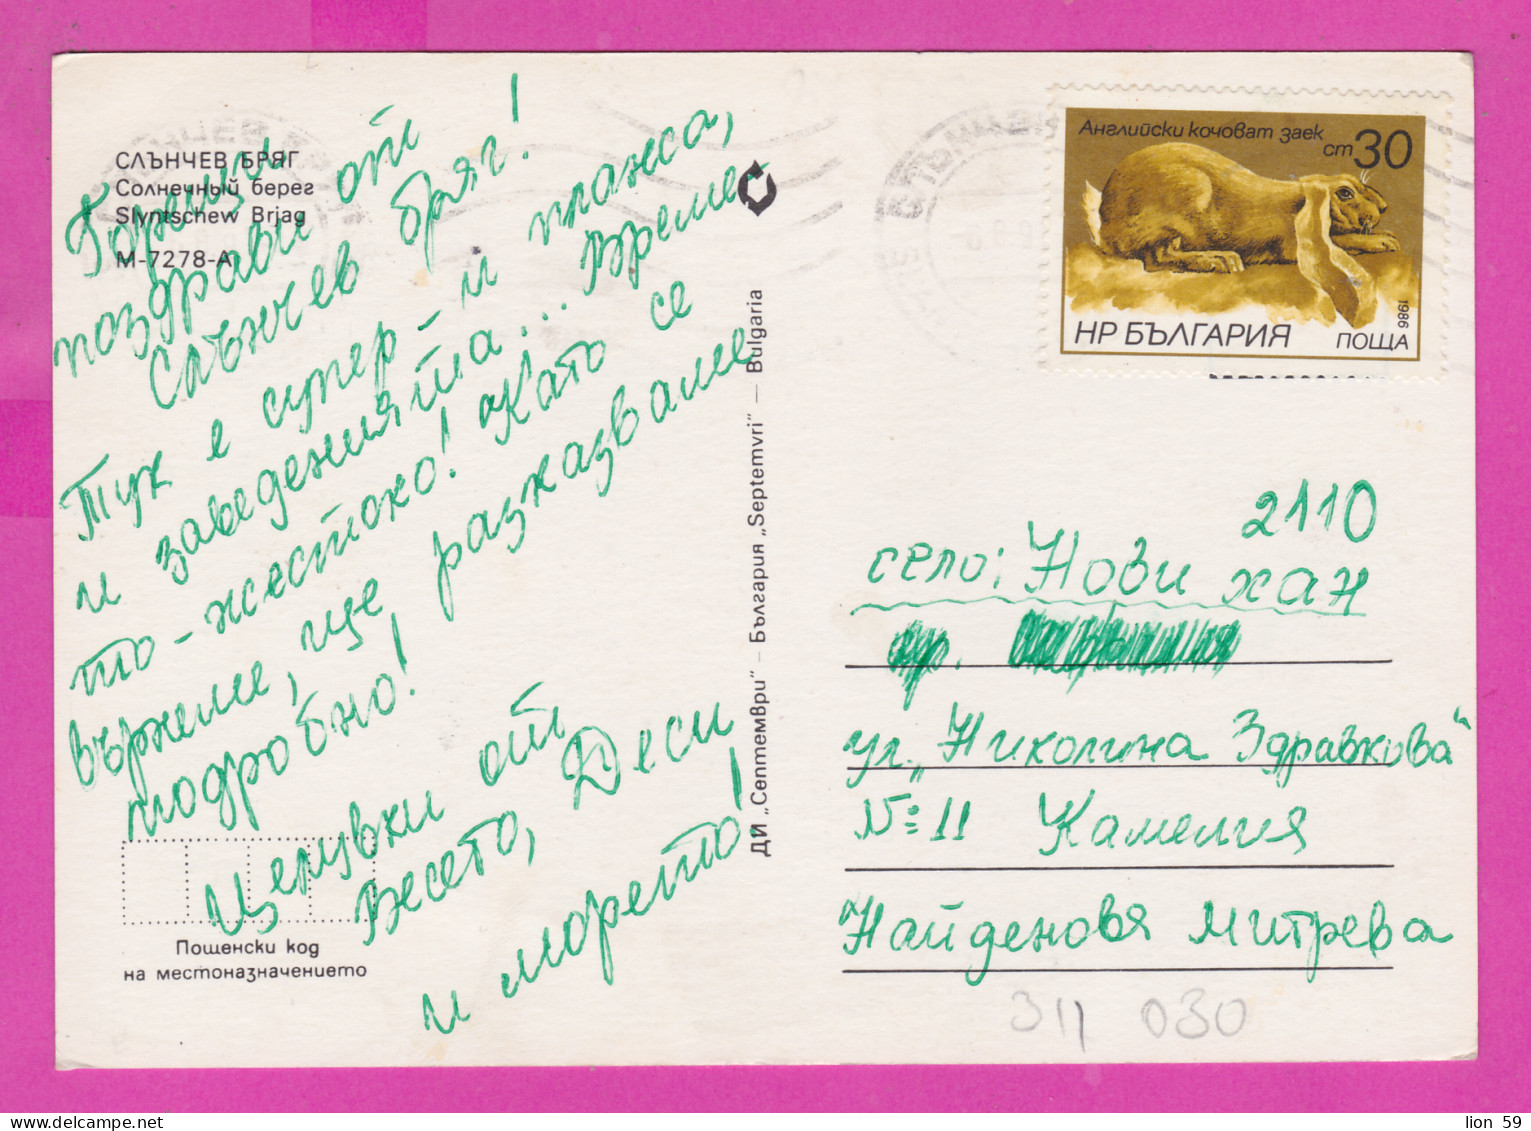 СЛЪНЧЕВ БРЯГ
Солнечный берег
Slyntschew Brjag
М-7278-А
Горещи
поздрави от
Слънчев бряг!
Тук е супер - и плажа,
и заведенията... Времето
то - жестоко! Като се
върнеме, ще разказваме
подробно!
Целувки от
Весето, Деси
и морето!
Пощенски код
на местоназначението
ДИ „Септември" — България „Septemvri" — Bulgaria
Английски кочоват заек
ст 30
1986
НР БЪЛГАРИЯ ПОЩА
2110
село: Нови хан
ул. „Николина Здравкова"
№ 11 Камелия
Найденовя Митрева
311 030
lion 59